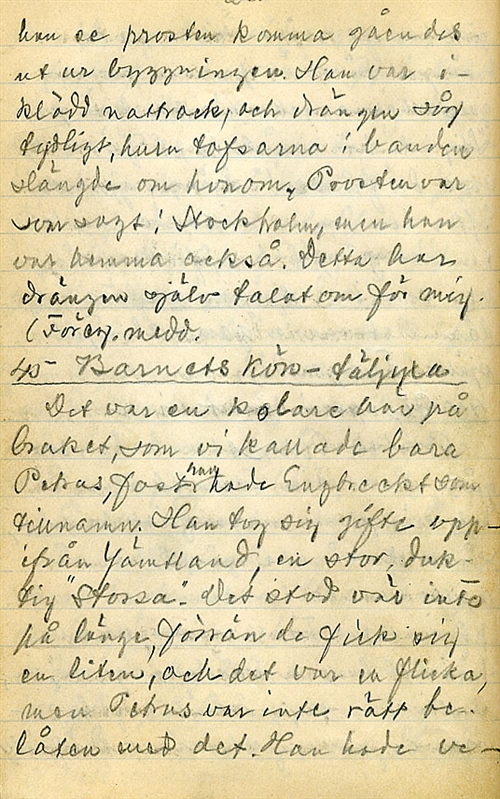 han se prosten komma gåendes
ut ur byggningen. Han var i-
klädd nattrock, och drängen såg
tydligt, huru tofsarna i banden
slängde om honom. Prosten var
som sagt i Stockholm, men han
var hemma också. Detta har
drängen själv talat om för mig.
(Föreg. medd.
45 Barnets kön - täljyxa
Det var en kolare här på
braket, som vi kallade bara
Petrus, fastän han hade Engbreckt som
tillnamn. Han tog sig gifte upp-
ifrån Jämtland, en stor, duk-
tig "Stossa". Det stod väl inte
på länge, förrän de fick sig
en liten, och det var en flicka,
men Petrus var inte rätt be-
låten med det. Han hade ve-